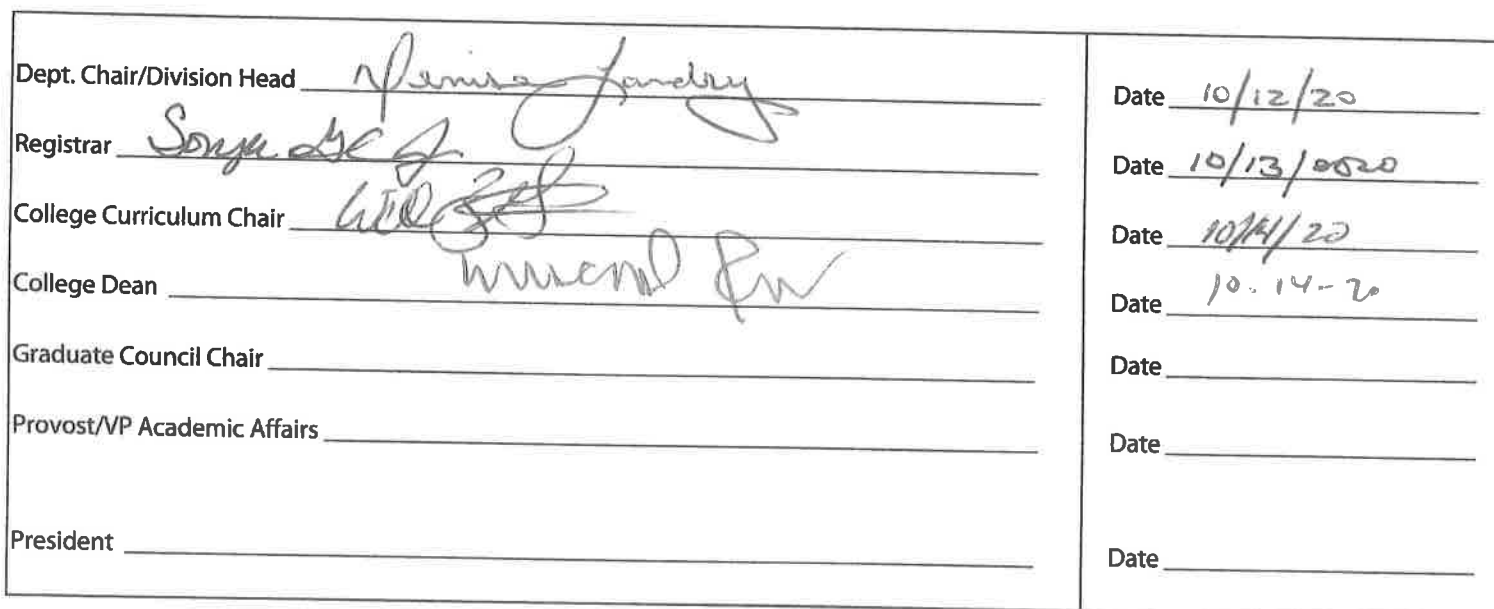 Dept. Chair/Division Head Denise Landry Date 10/12/20
Registrar Sonya Date 10/13/2020
College Curriculum Chair Date 10/14/20
College Dean Date 10-14-20
Graduate Council Chair Date
Provost/VP Academic Affairs Date
President Date